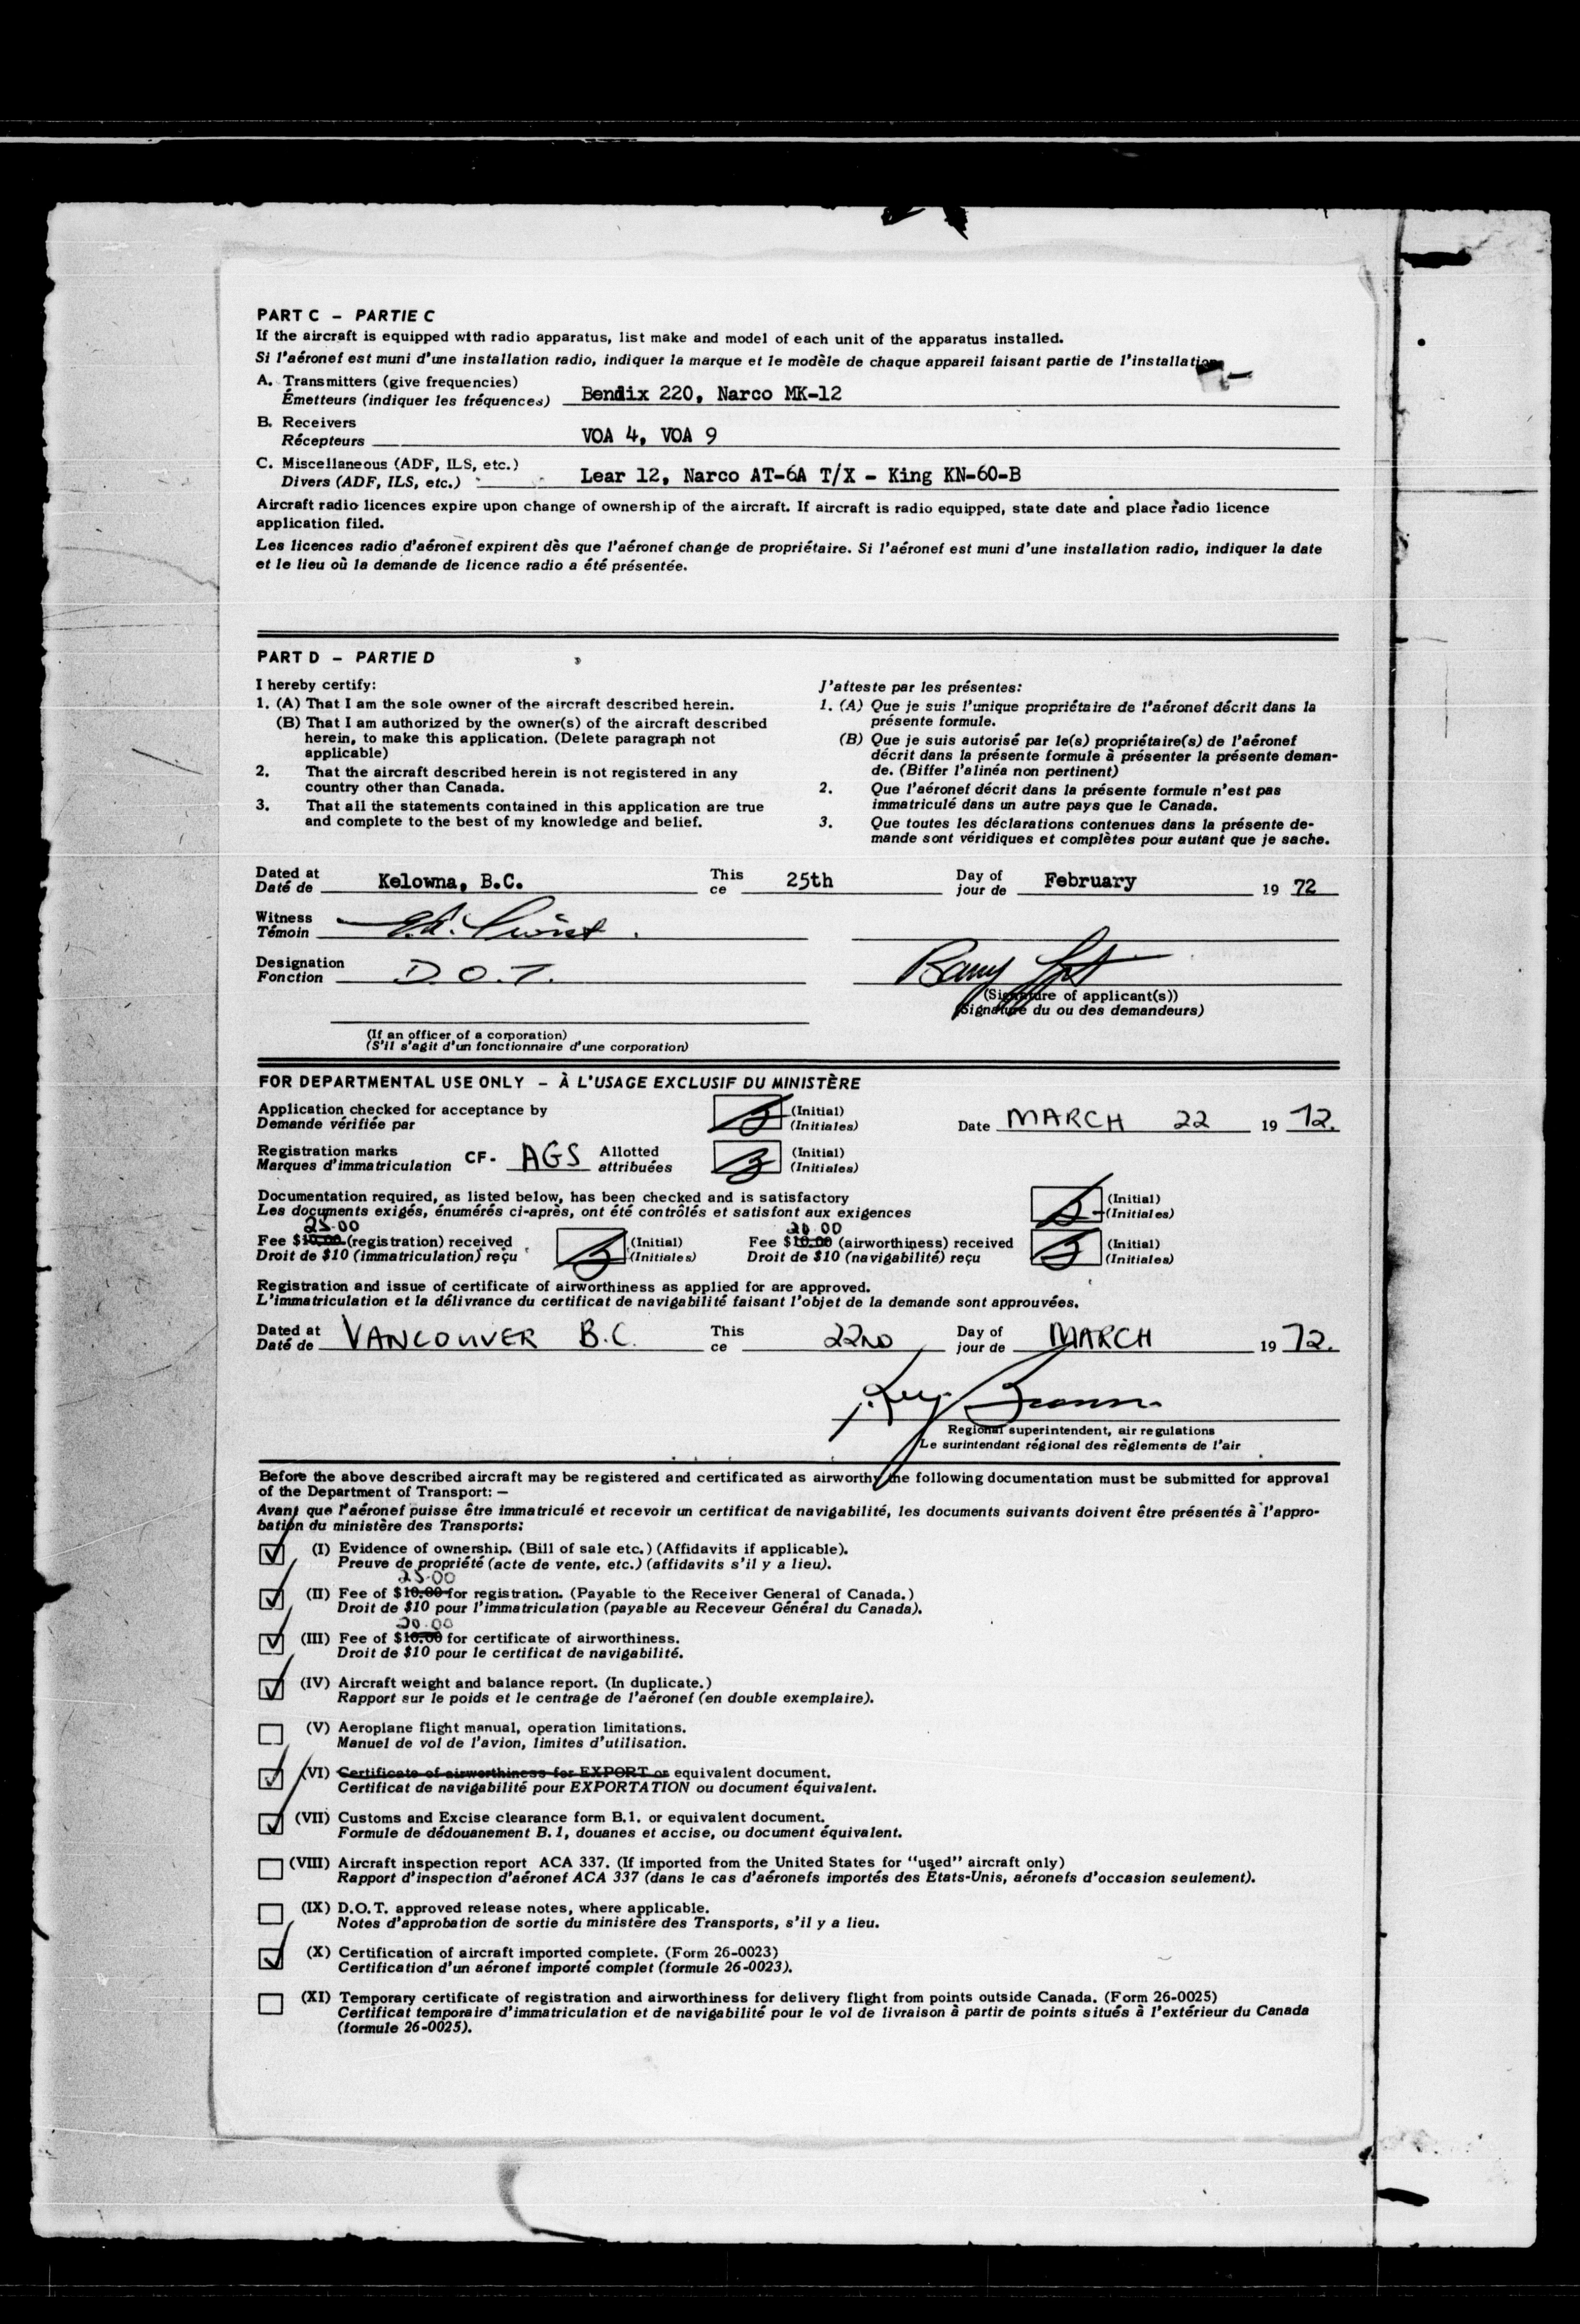 PART C – PARTIE C
If the aircraft is equipped with radio apparatus, list make and model of each unit of the apparatus installed.
Si l'aéronef est muni d'une installation radio, indiquer la marque et le modèle de chaque appareil faisant partie de l'installation
A. Transmitters (give frequencies)
Émetteurs (indiquer les fréquences) Bendix 220, Narco MK-12
B. Receivers
Récepteurs VOA 4, VOA 9
C. Miscellaneous (ADF, ILS, etc.)
Divers (ADF, ILS, etc.) Lear 12, Narco AT-6A T/X - King KN-60-B
Aircraft radio licences expire upon change of ownership of the aircraft. If aircraft is radio equipped, state date and place radio licence
application filed.
Les licences radio d'aéronef expirent dès que l'aéronef change de propriétaire. Si l'aéronef est muni d'une installation radio, indiquer la date
et le lieu où la demande de licence radio a été présentée.
PART D – PARTIE D
I hereby certify:
1. (A) That I am the sole owner of the aircraft described herein.
(B) That I am authorized by the owner(s) of the aircraft described
herein, to make this application. (Delete paragraph not
applicable)
2. That the aircraft described herein is not registered in any
country other than Canada.
3. That all the statements contained in this application are true
and complete to the best of my knowledge and belief.
J'atteste par les présentes:
1. (A) Que je suis l'unique propriétaire de l'aéronef décrit dans la
présente formule.
(B) Que je suis autorisé par le(s) propriétaire(s) de l'aéronef
décrit dans la présente formule à présenter la présente deman-
de. (Biffer l'alinéa non pertinent)
2. Que l'aéronef décrit dans la présente formule n'est pas
immatriculé dans un autre pays que le Canada.
3. Que toutes les déclarations contenues dans la présente de-
mande sont véridiques et complètes pour autant que je sache.
Dated at This Day of
Daté de Kelowna, B.C. ce 25th jour de February 19 72
Witness
Témoin
Designation
Fonction D.O.T. Barry
(Signature of applicant(s))
(Signature du ou des demandeurs)
(If an officer of a corporation)
(S'il s'agit d'un fonctionnaire d'une corporation)
FOR DEPARTMENTAL USE ONLY – À L'USAGE EXCLUSIF DU MINISTÈRE
Application checked for acceptance by (Initial)
Demande vérifiée par (Initiales) Date MARCH 22 19 72.
Registration marks CF- AGS Allotted (Initial)
Marques d'immatriculation attribuées (Initiales)
Documentation required, as listed below, has been checked and is satisfactory (Initial)
Les documents exigés, énumérés ci-après, ont été contrôlés et satisfont aux exigences (Initiales)
25.00 20.00
Fee $10.00 (registration) received (Initial) Fee $10.00 (airworthiness) received (Initial)
Droit de $10 (immatriculation) reçu (Initiales) Droit de $10 (navigabilité) reçu (Initiales)
Registration and issue of certificate of airworthiness as applied for are approved.
L'immatriculation et la délivrance du certificat de navigabilité faisant l'objet de la demande sont approuvées.
Dated at This Day of
Daté de VANCOUVER B.C. ce 22ND jour de MARCH 19 72.
Regional superintendent, air regulations
Le surintendant régional des règlements de l'air
Before the above described aircraft may be registered and certificated as airworthy the following documentation must be submitted for approval
of the Department of Transport: –
Avant que l'aéronef puisse être immatriculé et recevoir un certificat de navigabilité, les documents suivants doivent être présentés à l'appro-
bation du ministère des Transports:
(I) Evidence of ownership. (Bill of sale etc.) (Affidavits if applicable).
Preuve de propriété (acte de vente, etc.) (affidavits s'il y a lieu).
25.00
(II) Fee of $10.00 for registration. (Payable to the Receiver General of Canada.)
Droit de $10 pour l'immatriculation (payable au Receveur Général du Canada).
20.00
(III) Fee of $10.00 for certificate of airworthiness.
Droit de $10 pour le certificat de navigabilité.
(IV) Aircraft weight and balance report. (In duplicate.)
Rapport sur le poids et le centrage de l'aéronef (en double exemplaire).
(V) Aeroplane flight manual, operation limitations.
Manuel de vol de l'avion, limites d'utilisation.
(VI) Certificate of airworthiness for EXPORT or equivalent document.
Certificat de navigabilité pour EXPORTATION ou document équivalent.
(VII) Customs and Excise clearance form B.1. or equivalent document.
Formule de dédouanement B.1, douanes et accise, ou document équivalent.
(VIII) Aircraft inspection report ACA 337. (If imported from the United States for "used" aircraft only)
Rapport d'inspection d'aéronef ACA 337 (dans le cas d'aéronefs importés des États-Unis, aéronefs d'occasion seulement).
(IX) D.O.T. approved release notes, where applicable.
Notes d'approbation de sortie du ministère des Transports, s'il y a lieu.
(X) Certification of aircraft imported complete. (Form 26-0023)
Certification d'un aéronef importé complet (formule 26-0023).
(XI) Temporary certificate of registration and airworthiness for delivery flight from points outside Canada. (Form 26-0025)
Certificat temporaire d'immatriculation et de navigabilité pour le vol de livraison à partir de points situés à l'extérieur du Canada
(formule 26-0025).